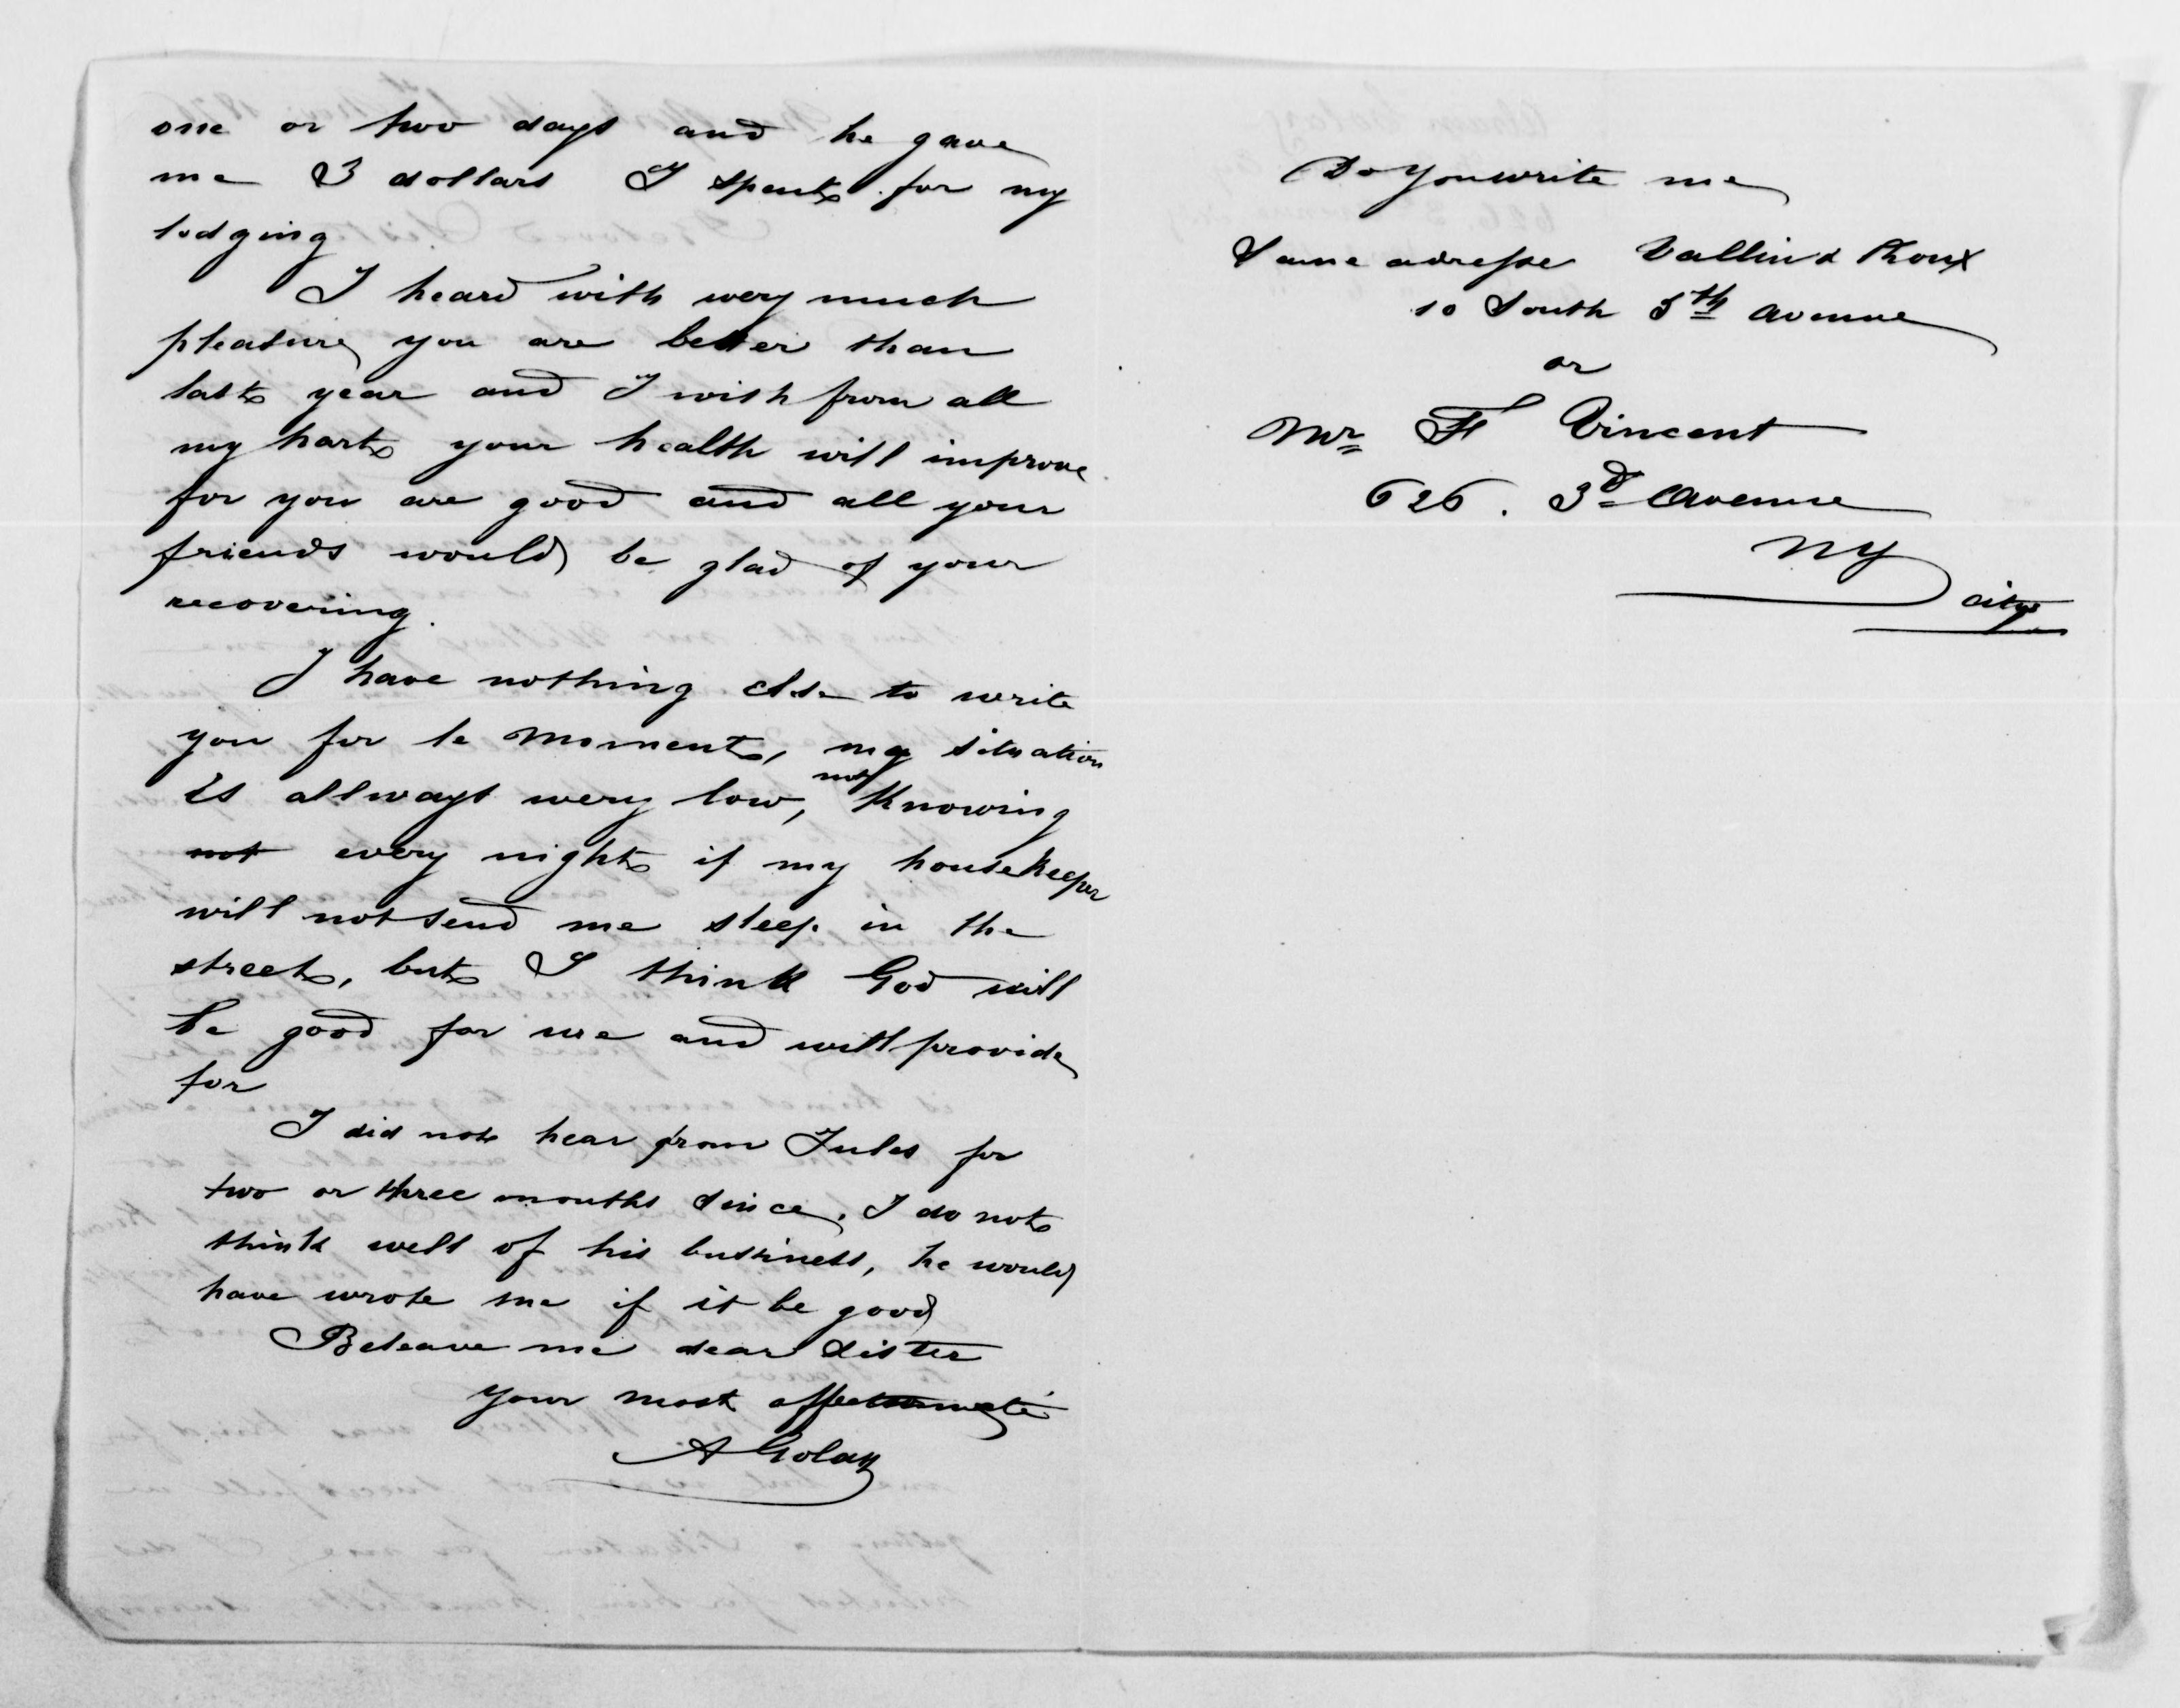 one or two days and he gave
me 3 dollars I spent for my
lodging
I heard with wery much
pleasure you are better than
last year and I wish from all
my hart your health will improve
for you are good and all your
friends would be glad of your
recovering.
I have nothing else to write
you for le moment, my situation
is allways wery low, not Knowing
not every night if my houseKeeper
will not send me sleep in the
street, but I think God will
be good for me and will provide
for
I did not hear from Jules for
two or three months since. I do not
think well of his bussiness, he would
have wrote me if it be good
Beleave me dear sister
your most affectionate
A Golay
Do you write me
Same adresse Vallin & Roux
10 South 5th avenue
or
Mr F Vincent
626. 3d Avenue
NY
city